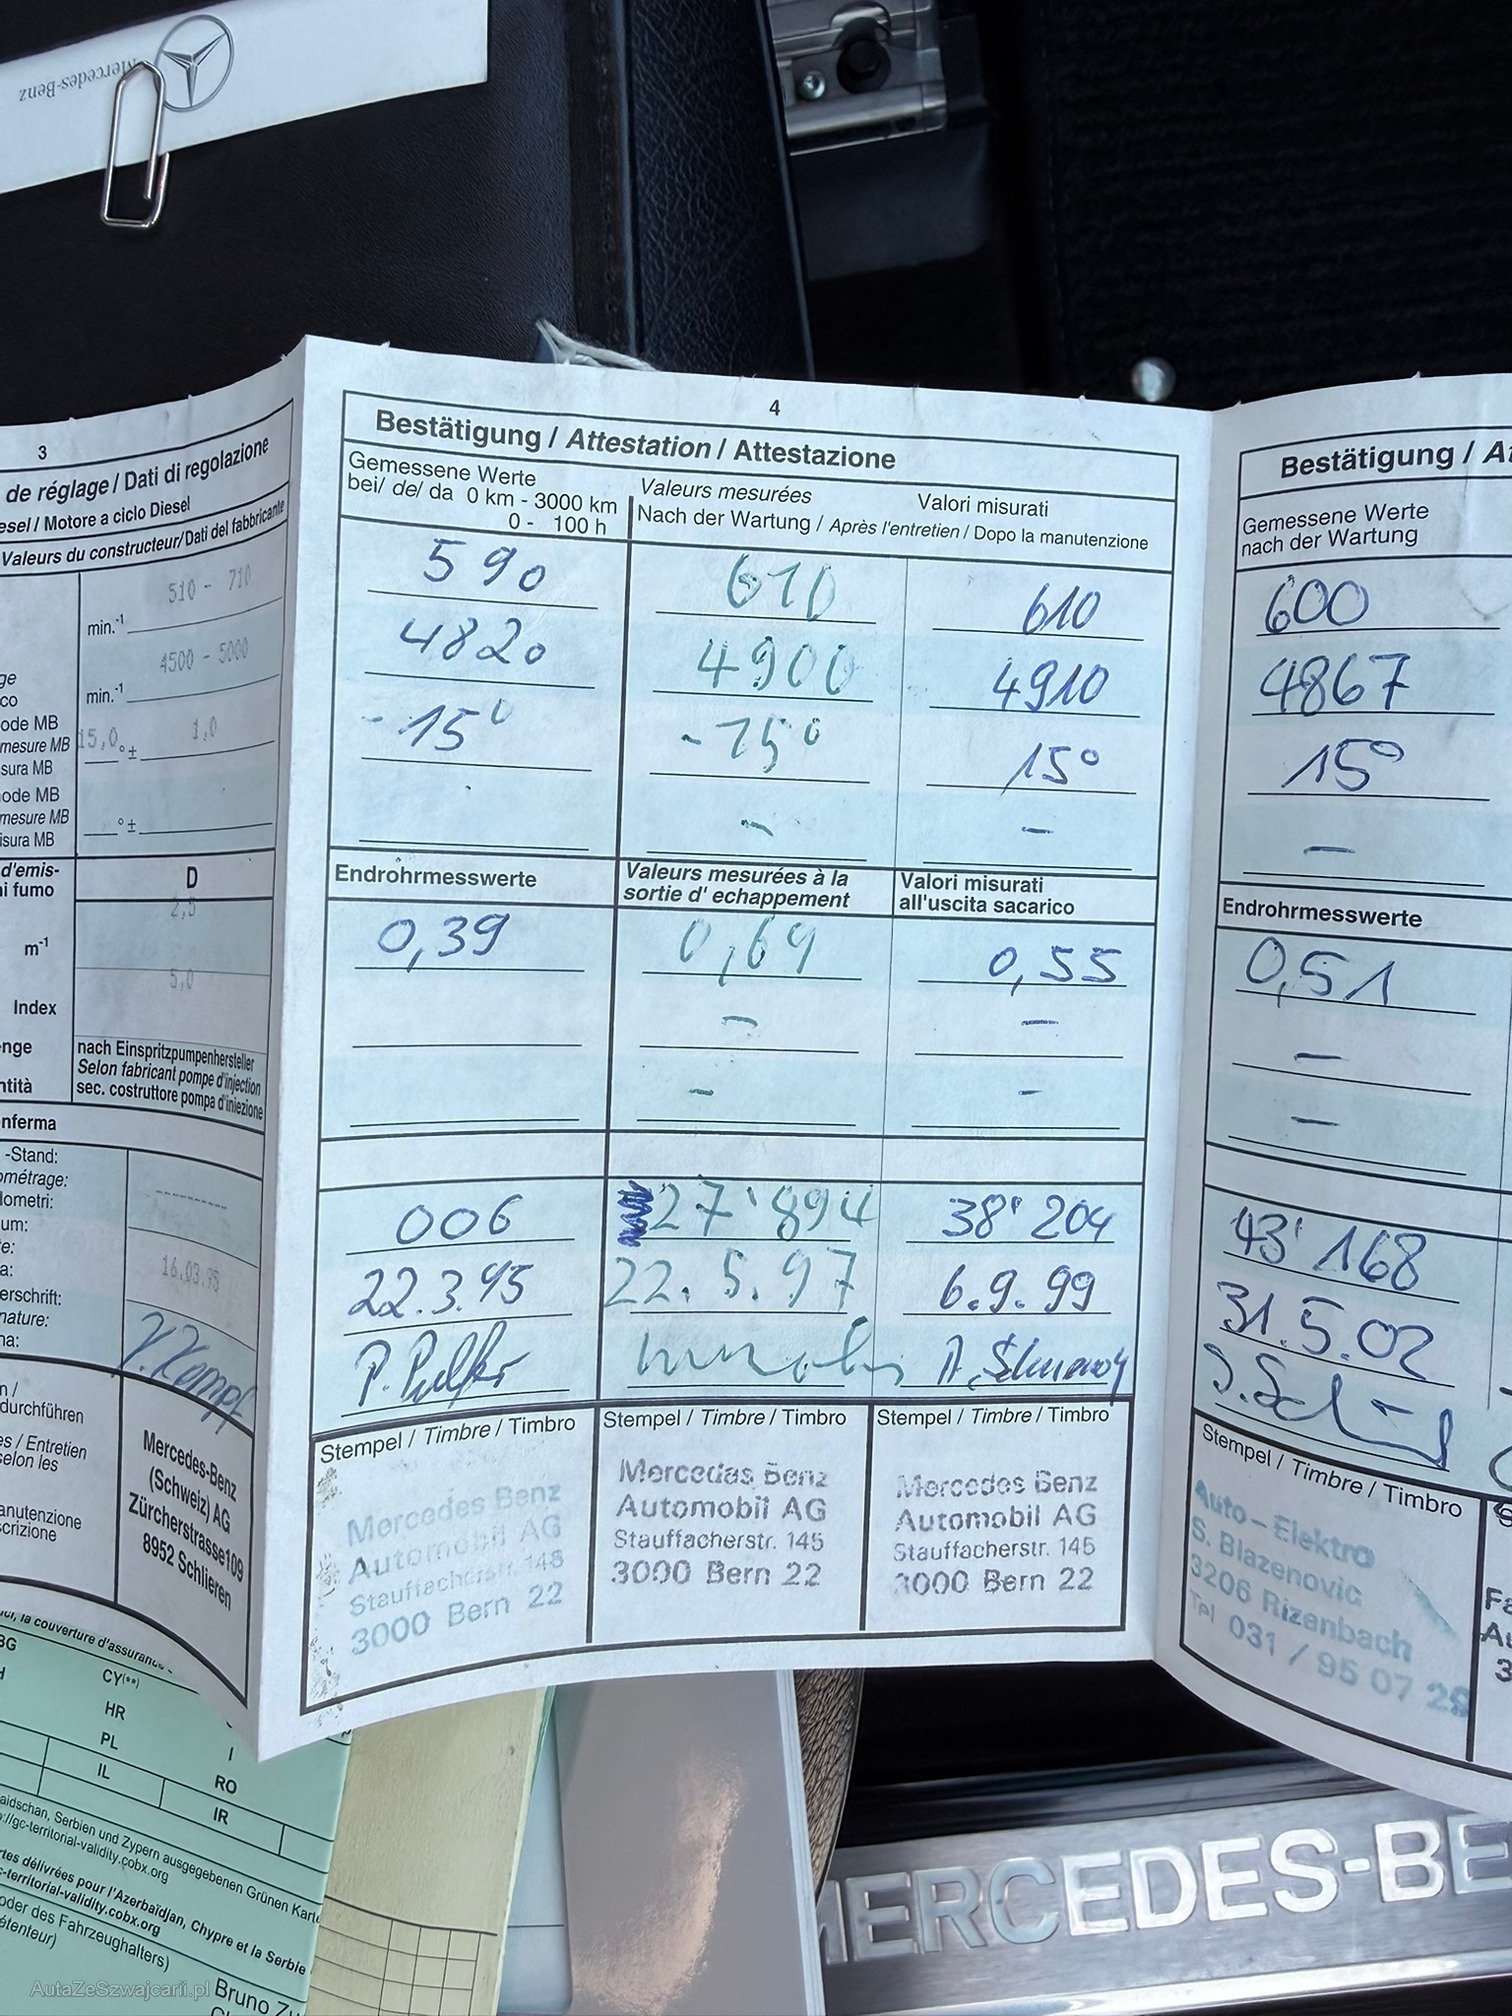 Mercedes-Benz
3
de réglage / Dati di regolazione
esel / Motore a ciclo Diesel
Valeurs du constructeur/Dati del fabbricante
510 - 710
min.-1
4500 - 5000
ge
co
min.-1
ode MB
mesure MB
sura MB
15,0 ° ± 1,0
ode MB
mesure MB
isura MB
° ±
d'emis-
ni fumo
D
2,5
m-1
5,0
Index
enge
ntità
nach Einspritzpumpenhersteller
Selon fabricant pompe d'injection
sec. costruttore pompa d'iniezione
onferma
-Stand:
ométrage:
lometri:
um:
te:
a:
16.03.95
erschrift:
nature:
ma:
n /
durchführen
es / Entretien
selon les
anutenzione
scrizione
Mercedes-Benz
(Schweiz) AG
Zürcherstrasse109
8952 Schlieren
4
Bestätigung / Attestation / Attestazione
Gemessene Werte
bei/ de/ da 0 km - 3000 km
0 - 100 h
Valeurs mesurées
Valori misurati
Nach der Wartung / Après l'entretien / Dopo la manutenzione
590 610 610
4820 4900 4910
- 15° - 15° 15°
- -
Endrohrmesswerte
Valeurs mesurées à la
sortie d' echappement
Valori misurati
all'uscita sacarico
0,39 0,69 0,55
- -
- -
006 27'894 38'204
22.3.95 22.5.97 6.9.99
Stempel / Timbre / Timbro
Mercedes Benz
Automobil AG
Stauffacherstr. 145
3000 Bern 22
Stempel / Timbre / Timbro
Mercedes Benz
Automobil AG
Stauffacherstr. 145
3000 Bern 22
Stempel / Timbre / Timbro
Mercedes Benz
Automobil AG
Stauffacherstr. 145
3000 Bern 22
Bestätigung / At
Gemessene Werte
nach der Wartung
600
4867
15°
-
Endrohrmesswerte
0,51
-
-
43'168
31.5.02
Stempel / Timbre / Timbro
Auto - Elektro
S. Blazenovic
3206 Rizenbach
Tel 031 / 95 07 29
Fa
Au
3
la couverture d'assuranc
BG
CY(**)
HR
PL
I
IL
RO
IR
aidschan, Serbien und Zypern ausgegebenen Grünen Karte
://gc-territorial-validity.cobx.org
rtes délivrées pour l'Azerbaïdjan, Chypre et la Serbie
c-territorial-validity.cobx.org
oder des Fahrzeughalters)
étenteur)
Bruno Zu
MERCEDES-BE
AutaZeSzwajcarii.pl